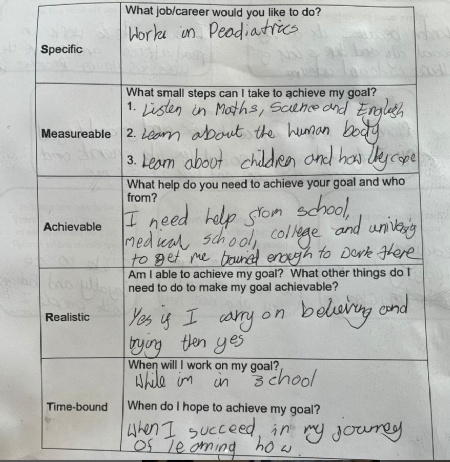 What job/career would you like to do?
Specific
Worke in Peadiatrics
What small steps can I take to achieve my goal?
Measureable
1. Listen in Maths, Science and English
2. Learn about the human body
3. Learn about children and how they cope
What help do you need to achieve your goal and who
from?
Achievable
I need help from school,
medical school, college and university
to get me enough to work there
Am I able to achieve my goal? What other things do I
need to do to make my goal achievable?
Realistic
Yes if I carry on believing and
trying then yes
When will I work on my goal?
While im in school
Time-bound
When do I hope to achieve my goal?
When I succeed in my journey
of learning how